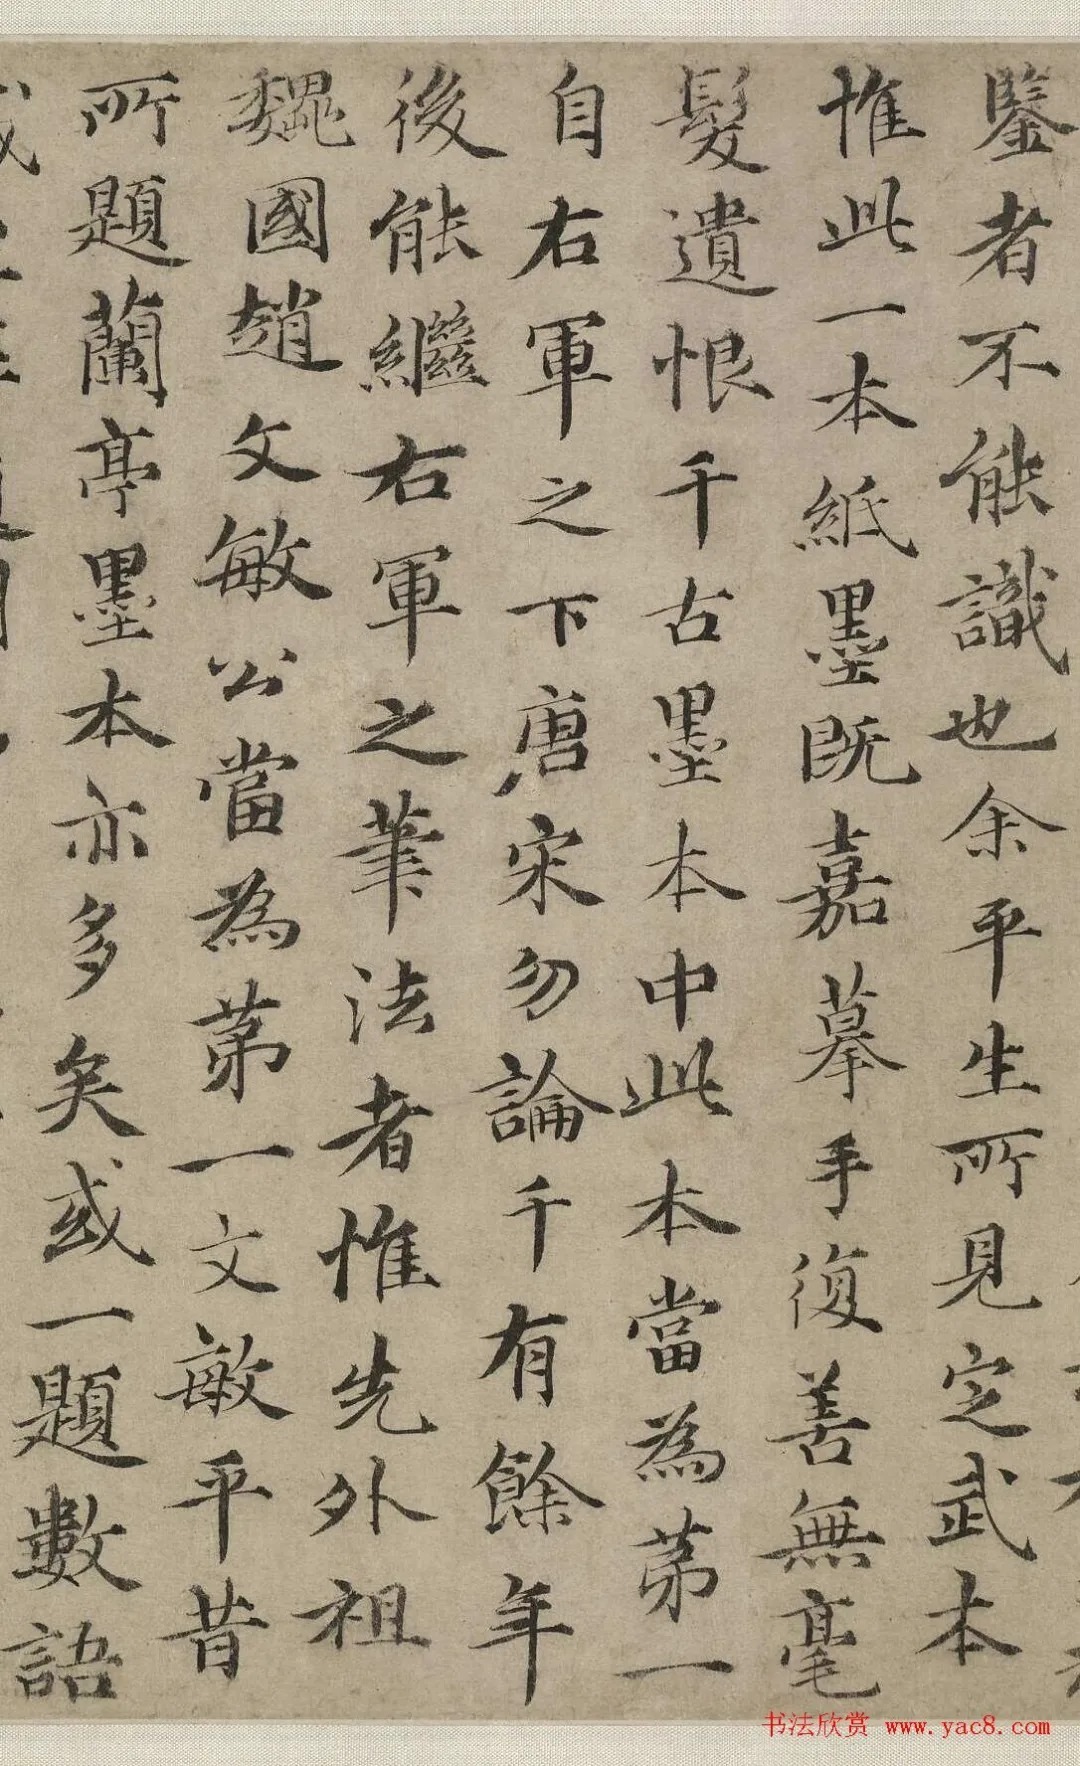 鑒者不能識也余平生所見定武本
惟此一本紙墨既嘉摹手復善無毫
髮遺恨千古墨本中此本當為第一
自右軍之下唐宋勿論千有餘年
後能繼右軍之筆法者惟先外祖
魏國趙文敏公當為第一文敏平昔
所題蘭亭墨本亦多矣或一題數語
书法欣赏 www.yac8.com